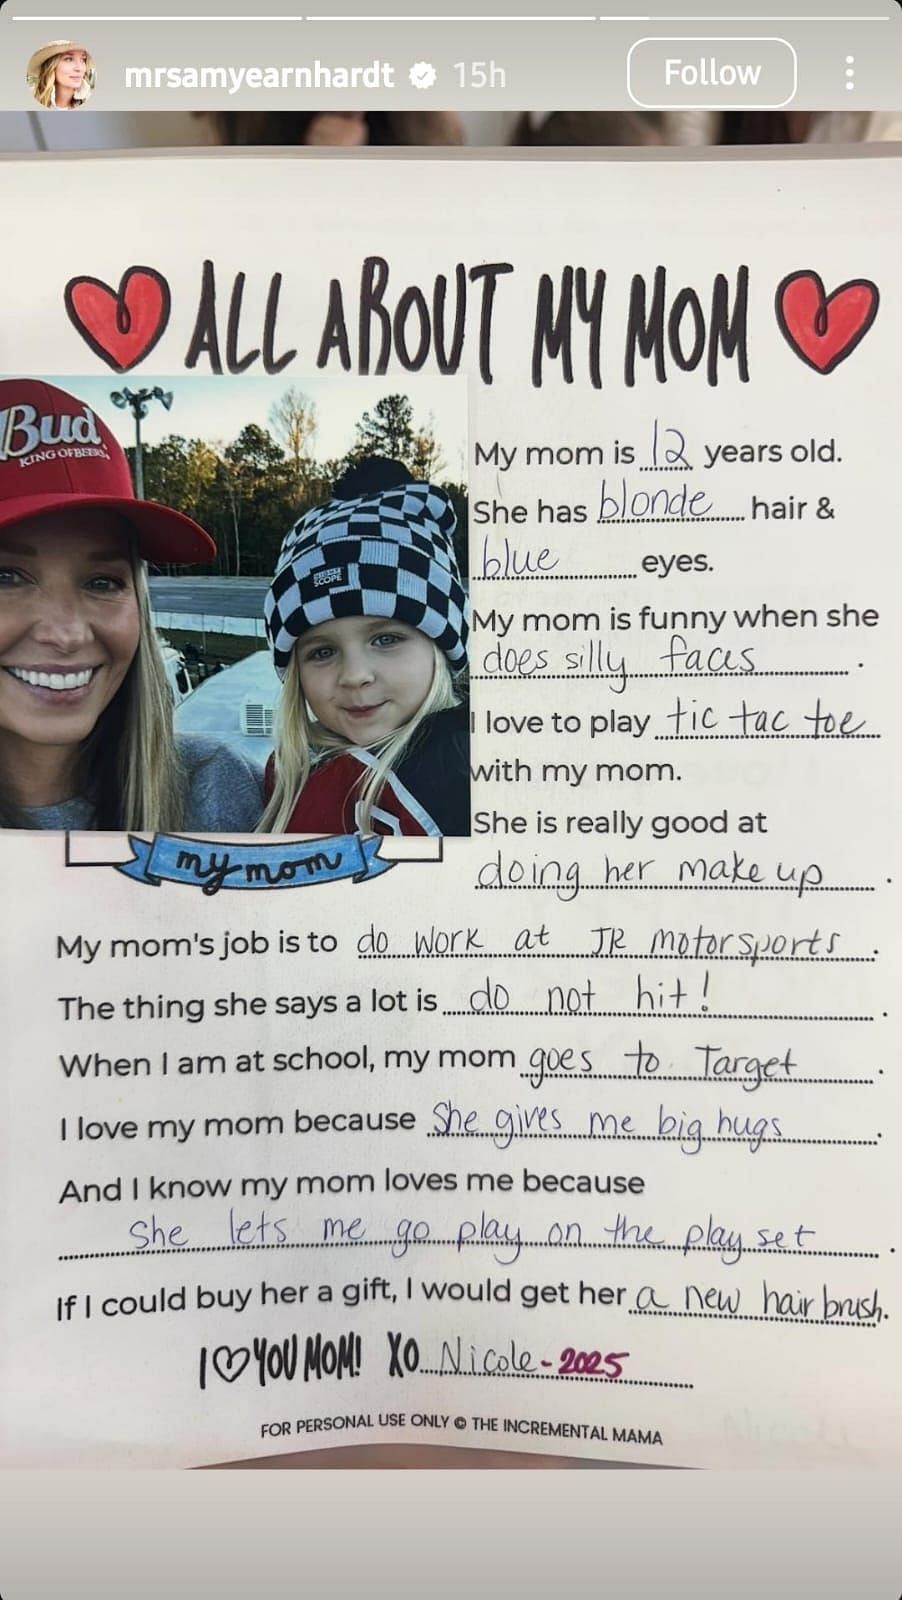 mrsamyearnhardt 15h Follow
ALL ABOUT MY MOM
Bud
KING OF BEERS
SCOPE
my mom
My mom is 12 years old.
She has blonde hair &
blue eyes.
My mom is funny when she
does silly faces.
I love to play tic tac toe
with my mom.
She is really good at
doing her make up.
My mom's job is to do work at JR motorsports.
The thing she says a lot is do not hit!.
When I am at school, my mom goes to Target.
I love my mom because She gives me big hugs.
And I know my mom loves me because
She lets me go play on the play set.
If I could buy her a gift, I would get her a new hair brush.
I ♡ YOU MOM! XO Nicole - 2025
FOR PERSONAL USE ONLY © THE INCREMENTAL MAMA